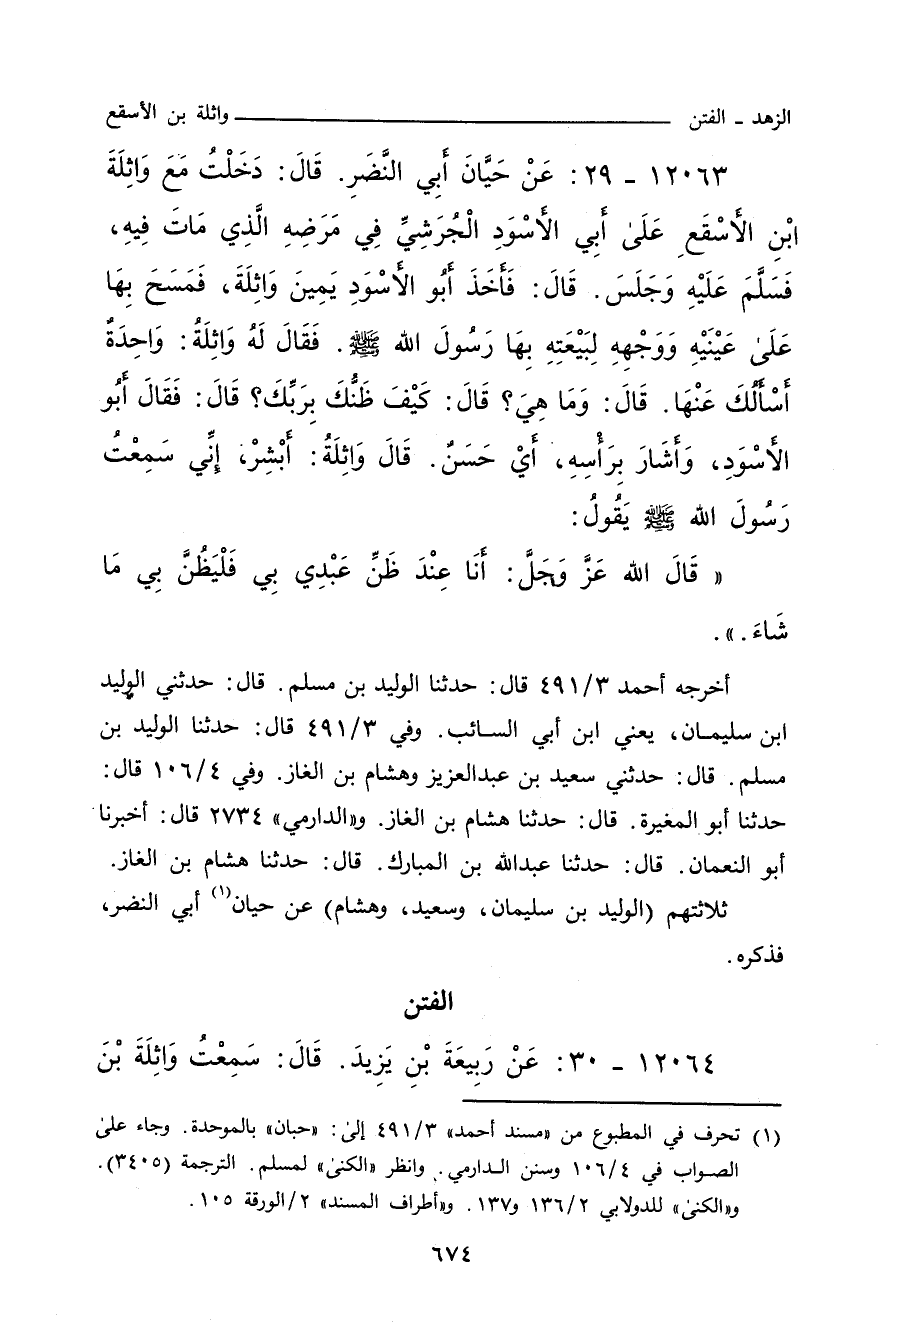 الزهد ـ الفتن ـــــــــــــــــــــــــــــ واثلة بن الأسقع
١٢٠٦٣ ـ ٢٩: عَنْ حَيَّانَ أَبي النَّضَرِ. قَالَ: دَخَلْتُ مَعَ وَاثِلَةَ
ابْنِ الأَسْقَعِ عَلَىٰ أَبي الأَسْوَدِ الْجُرَشِيِّ فِي مَرَضِهِ الَّذِي مَاتَ فِيهِ،
فَسَلَّمَ عَلَيْهِ وَجَلَسَ. قَالَ: فَأَخَذَ أَبُو الأَسْوَدِ يَمِينَ وَاثِلَةَ، فَمَسَحَ بِهَا
عَلَىٰ عَيْنَيْهِ وَوَجْهِهِ لِبَيْعَتِهِ بِهَا رَسُولَ الله ﷺ. فَقَالَ لَهُ وَاثِلَةُ: وَاحِدَةٌ
أَسْأَلُكَ عَنْهَا. قَالَ: وَمَا هِيَ؟ قَالَ: كَيْفَ ظَنُّكَ بِرَبِّكَ؟ قَالَ: فَقَالَ أَبُو
الأَسْوَدِ، وَأَشَارَ بِرَأْسِهِ، أَيْ حَسَنٌ. قَالَ وَاثِلَةُ: أَبْشِرْ، إِنِّي سَمِعْتُ
رَسُولَ الله ﷺ يَقُولُ:
« قَالَ الله عَزَّ وَجَلَّ: أَنَا عِنْدَ ظَنِّ عَبْدِي بِي فَلْيَظُنَّ بِي مَا
شَاءَ.».
أخرجه أحمد ٤٩١/٣ قال: حدثنا الوليد بن مسلم. قال: حدثني الوليد
ابن سليمان، يعني ابن أبي السائب. وفي ٤٩١/٣ قال: حدثنا الوليد بن
مسلم. قال: حدثني سعيد بن عبدالعزيز وهشام بن الغاز. وفي ١٠٦/٤ قال:
حدثنا أبو المغيرة. قال: حدثنا هشام بن الغاز. و«الدارمي» ٢٧٣٤ قال: أخبرنا
أبو النعمان. قال: حدثنا عبدالله بن المبارك. قال: حدثنا هشام بن الغاز.
ثلاثتهم (الوليد بن سليمان، وسعيد، وهشام) عن حيان(١) أبي النضر،
فذكره.
الفتن
١٢٠٦٤ ـ ٣٠: عَنْ رَبِيعَةَ بْنِ يَزِيدَ. قَالَ: سَمِعْتُ وَاثِلَةَ بْنَ
(١) تحرف في المطبوع من «مسند أحمد» ٤٩١/٣ إلىٰ: «حبان» بالموحدة. وجاء علىٰ
الصواب في ١٠٦/٤ وسنن الدارمي. وانظر «الكنىٰ» لمسلم. الترجمة (٣٤٠٥).
و«الكنىٰ» للدولابي ١٣٦/٢ و١٣٧. و«أطراف المسند» ٢/الورقة ١٠٥.
٦٧٤